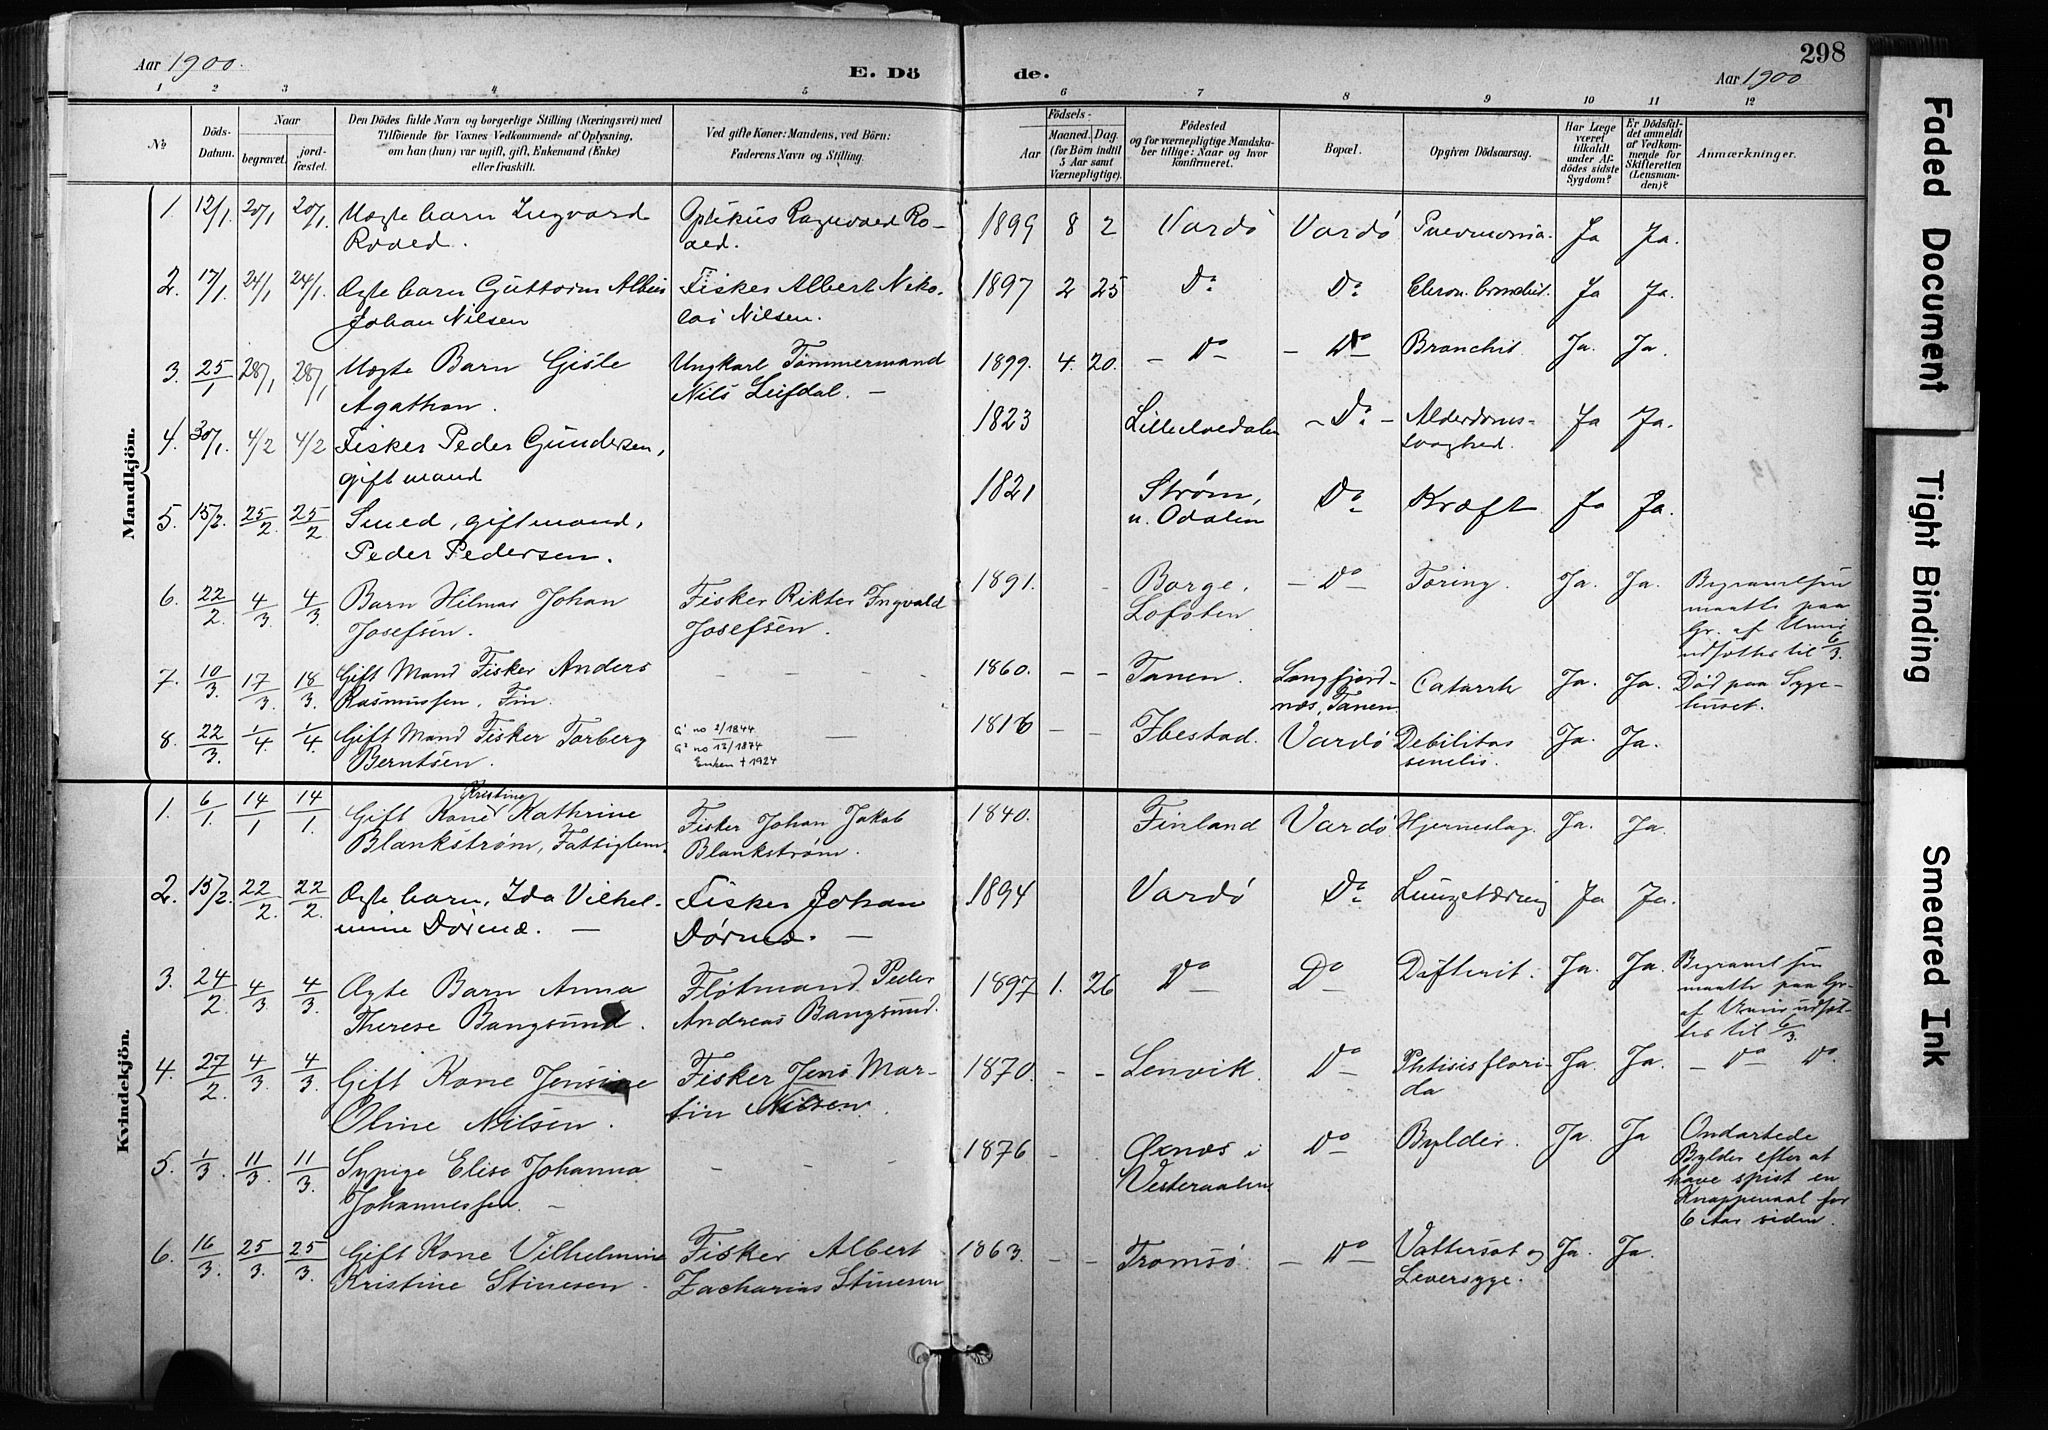 298
Aar 1900.
E. Dö
de.
Aar 1900
1 2 3 4 5 6 7 8 9 10 11 12
No
Döds-Datum.
Naar
begravet.
jord-fæstet.
Den Dödes fulde Navn og borgerlige Stilling (Næringsvei) med
Tilföiende for Voxnes Vedkommende af Oplysning,
om han (hun) var ugift, gift, Enkemand (Enke)
eller fraskilt.
Ved gifte Koner: Mandens, ved Börn:
Faderens Navn og Stilling.
Födsels-
Aar
Maaned.
Dag.
(for Börn indtil
5 Aar samt
Værnepligtige).
Födested
og for værnepligtige Mandska-
ber tillige: Naar og hvor
konfirmeret.
Bopæl.
Opgiven Dödsaarsag.
Har Læge
været
tilkaldt
under Af-
dödes sidste
Sygdom?
Er Dödsfal-
det anmeldt
af Vedkom-
mende for
Skifteretten
(Lensman-
den)?
Anmærkninger.
Mandkjön.
1. 12/1 20/1 20/1 Uægte barn Ingvard Optikus Ragnvald Ro- 1899 8 2 Vardö Vardö Pneumonia. Ja Ja.
Roald. ald.
2. 17/1 24/1 24/1. Ægte barn Guttorm Albin Fisker Albert Niko- 1897 2 25 Do Do Ja Ja.
Johan Nilsen lai Nilsen.
3. 25/1 28/1 28/1 Uægte Barn Gisle Ungkarl Tømmermand 1899. 4. 20. - Do - Do Bronchit Ja. Ja.
Agathon. Nils Leifdal. -
4. 30/1 4/2 4/2 Fisker Peder Gundersen, 1823 Lilleelvedalen - Do - Alderdoms- Ja Ja.
gift mand svaghed.
5. 15/2. 25/2. 25/2 Smed, gift mand, 1821 Strøm, Do Kræft Ja Ja.
Peder Pedersen. n. Odalen
6. 22/2. 4/3 4/3 Barn Hilmar Johan Fisker Rikter Ingvald 1891. Borge, - Do Tæring. Ja. Ja. Begravelsen
Josefsen. Josefsen. Lofoten maatte paa
Gr. af Uveir
udsættes til 6/3.
7. 10/3. 17/3 18/3 Gift Mand Fisker Anders - - - - 1860. - - Tanen. Langfjord- Catarrh Ja. Ja. Død paa Syge-
Rasmussen, Fin. næs, Tanen huset.
8. 22/3. 1/4. 1/4. Gift Mand Fisker Torberg G1 no 2/1844 - 1816 - - Ibestad. Vardö Debilitas Ja. Ja.
Berntsen. G2 no 13/1874 senilis.
Enken + 1924
Kvindekjön.
1. 6/1. 14/1 14/1. Gift Kone Kristine Kathrine Fisker Johan Jakob 1840. Finland Vardö Hjerneslag. Ja. Ja.
Blankstrøm, Fattiglem. Blankstrøm.
2. 15/2. 22/2. 22/2. Ægte barn, Ida Vilhel- Fisker Johan 1894 Vardö Do Lungetæring Ja Ja.
mine Dørmæ. - Dørmæ. -
3. 24/2. 4/3 4/3 Ægte Barn Anna Fløtmand Peder 1897 1. 26 Do Do Difterit. Ja. Ja. Begravelsen
Therese Bangsund. Andreas Bangsund. maatte paa Gr.
af Uveir udsæt-
tes til 6/3.
4. 27/2. 4/3. 4/3 Gift Kone Jensine Fisker Jens Mar- 1870. - - Lenvik. Do Phtisis flori- Ja. Ja. - Do Do
Oline Nilsen. tin Nilsen. da
5. 1/3. 11/3 11/3. Sypige Elise Johanna - - - 1876 - - Øxnæs i Do Bylder. Ja. Ja Ondartede
Johannessen. - Vesteraalen Bylder efter at
have spist en
Knappenaal for
6 Aar siden.
6. 16/3. 25/3. 25/3 Gift Kone Vilhelmine Fisker Albert 1863. - - Tromsö. - Do Vattersot og Ja. Ja.
Kristine Stinesen. Zacharias Stinesen Leversyge.
Faded Document
Tight Binding
Smeared Ink